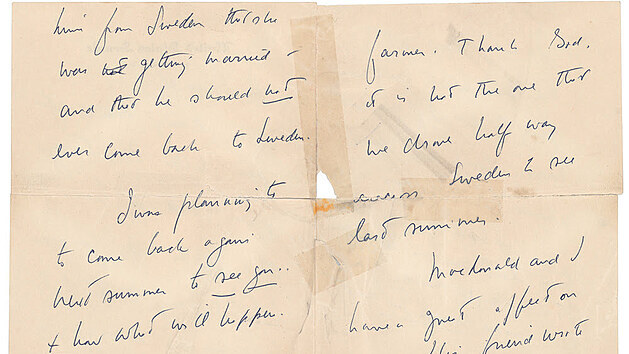 him from Sweden that she
was not getting married -
and that he should not
ever come back to Sweden.
I was planning to
to come back again
next summer to see you..
+ now what will happen.
farmer. Thank God.
it is not the one that
we drove half way
across Sweden to see
last summer.
Macdonald and I
have a great affect on
friend wrote